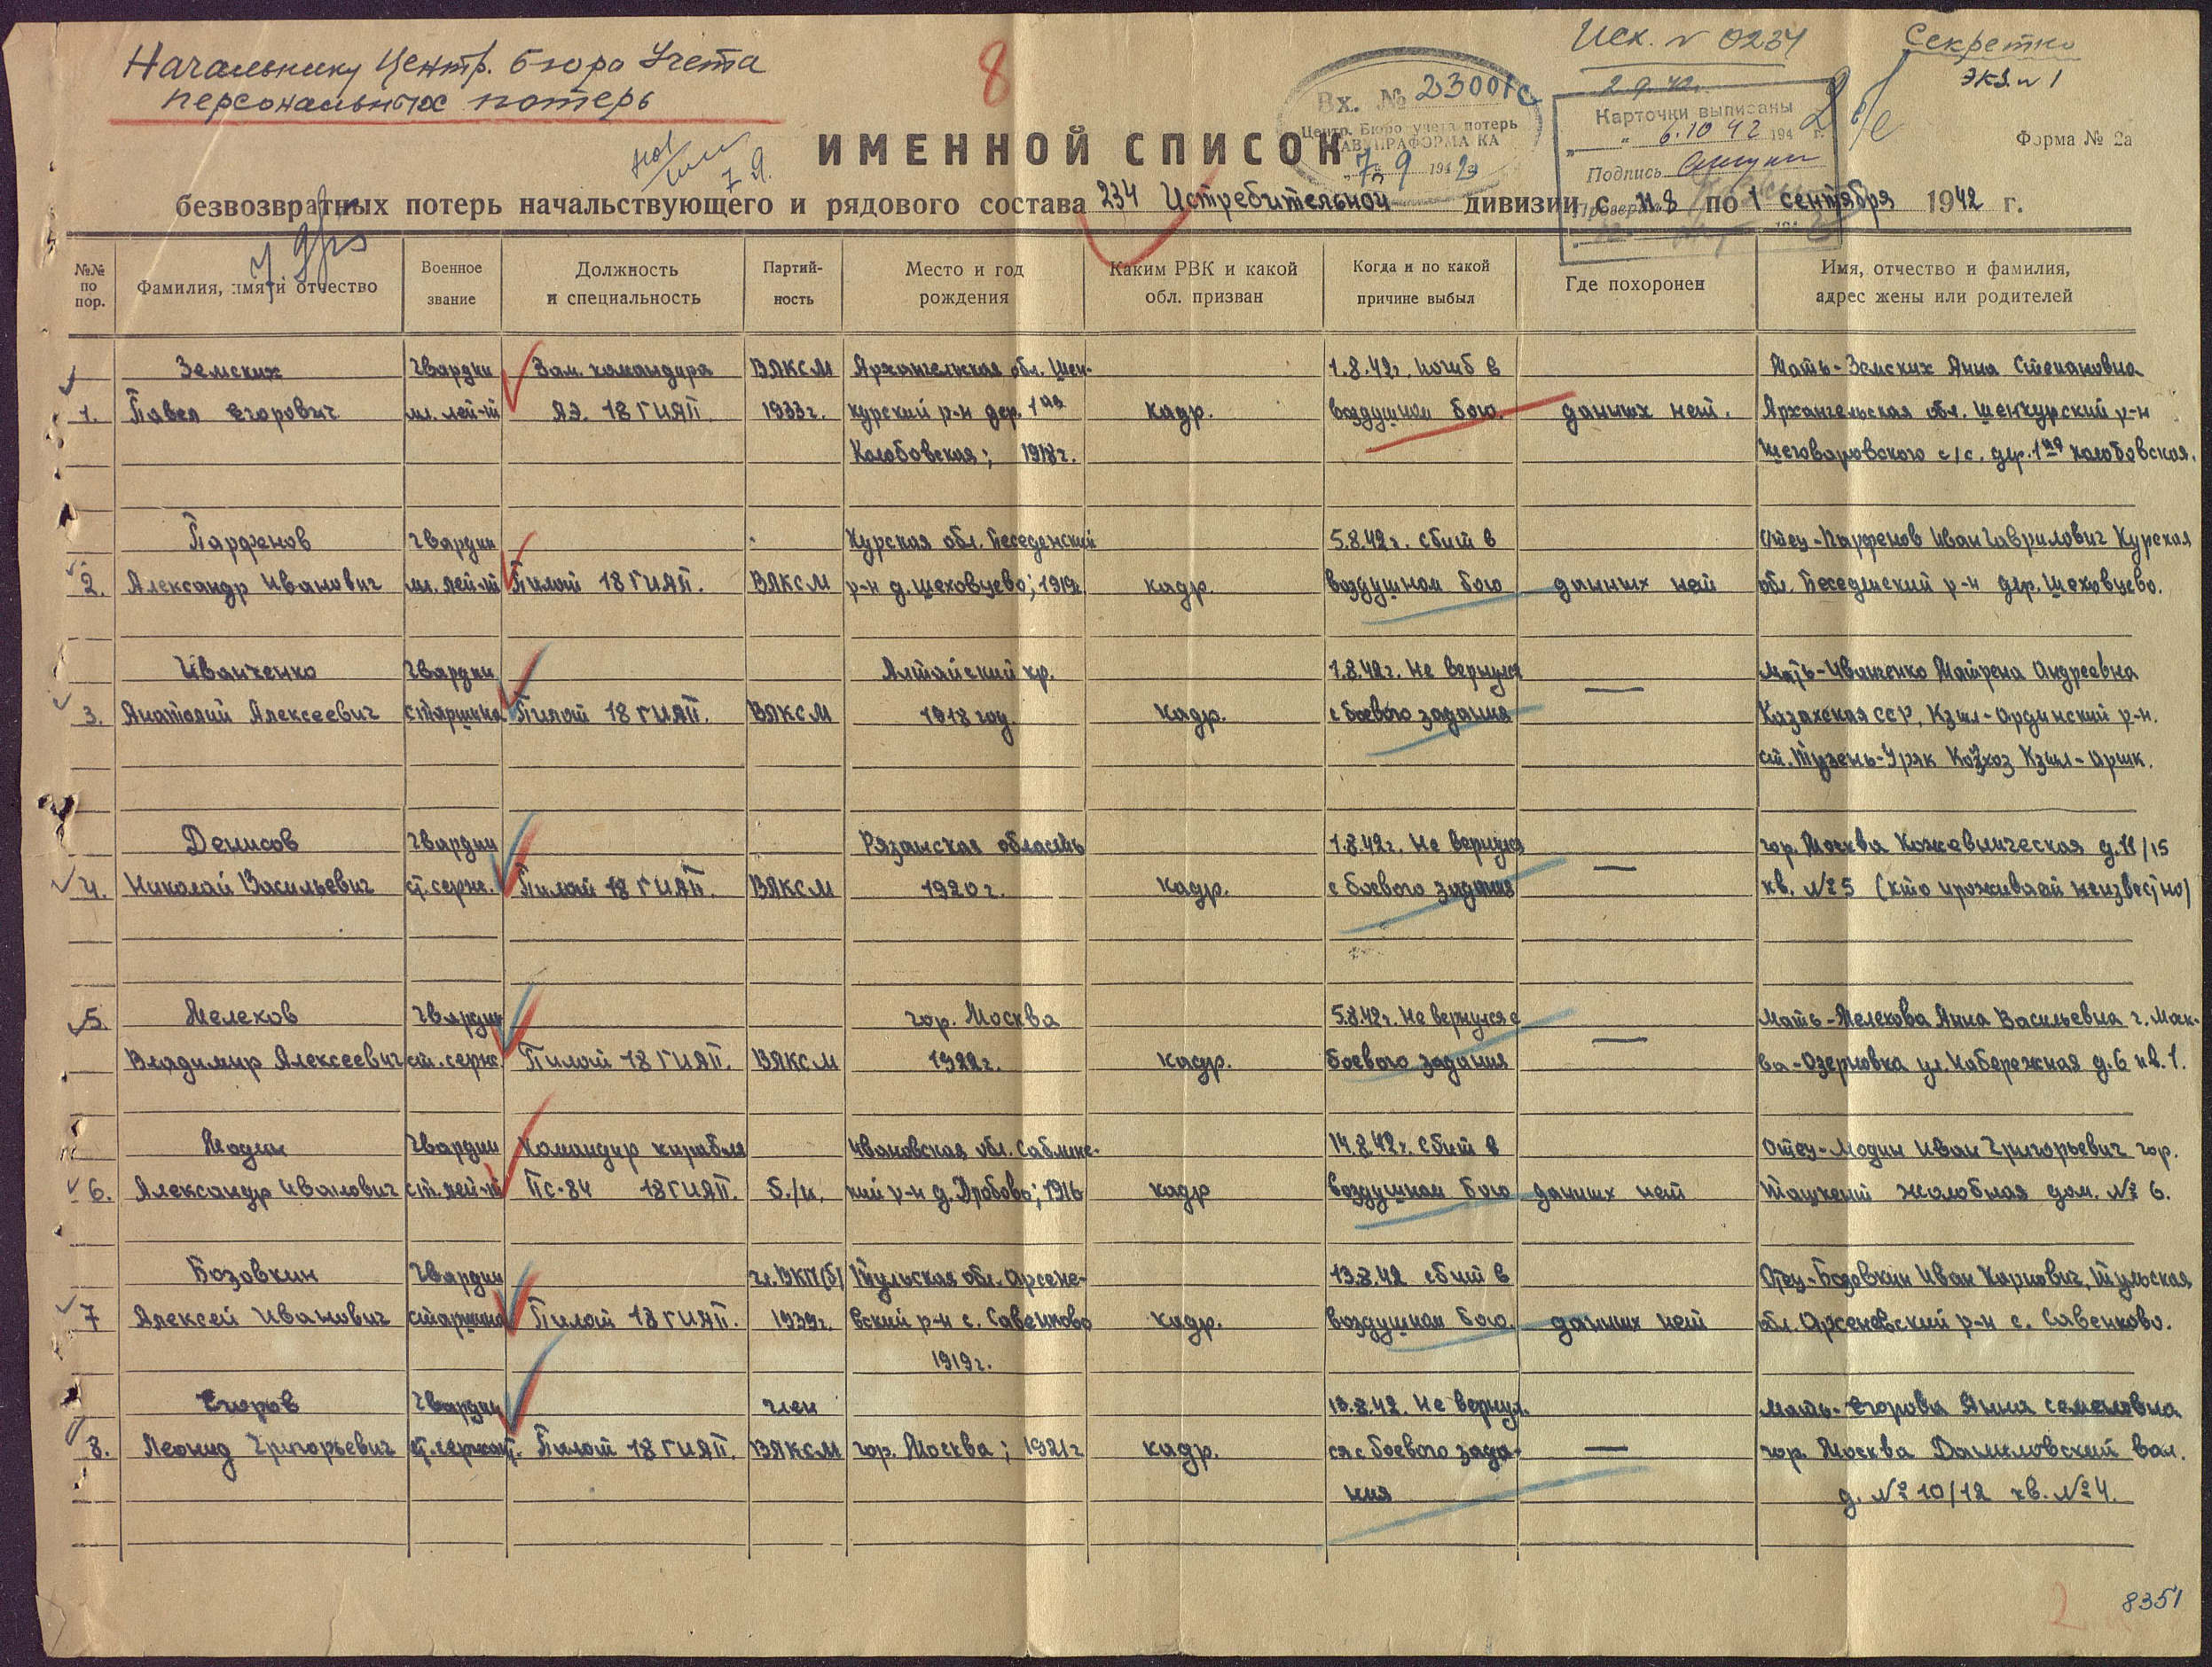 Начальнику Центр. бюро Учета
персональных потерь
8
Исх. № 0234
2.9.42г.
Секретно
экз. № 1
Вх. № 23001с
Центр. Бюро учета потерь
ГЛАВУПРАФОРМА КА
7 9 1942
Карточки выписаны
" 6.10 42 194 г.
Подпись
Форма № 2а
7.9.
ИМЕННОЙ СПИСОК
безвозвратных потерь начальствующего и рядового состава 234 Истребительной дивизии с 1.8 по 1 сентября 1942 г.
№№ по пор.
Фамилия, имя и отчество
Военное звание
Должность и специальность
Партий-ность
Место и год рождения
Каким РВК и какой обл. призван
Когда и по какой причине выбыл
Где похоронен
Имя, отчество и фамилия, адрес жены или родителей
Земских Гвардии Зам. командира ВЛКСМ Архангельская обл. Шен- 1.8.42г. погиб в Мать-Земских Анна Степановна
1. Павел Егорович мл. лей-т АЭ. 18 ГИАП 1933г. курский р-н дер. 1ая кадр. воздушном бою. данных нет. Архангельская обл. Шенкурский р-н
Колобовская; 1918г. Шеговаровского с/с. дер. 1ая Колобовская.
Парфенов Гвардии Курская обл. Беседенский 5.8.42г. сбит в Отец-Парфенов Иван Гаврилович Курская
2. Александр Иванович мл. лей-т Пилот 18 ГИАП. ВЛКСМ р-н д. Шеховцево; 1919г. кадр. воздушном бою данных нет обл. Беседенский р-н дер. Шеховцево.
Иванченко Гвардии Алтайский кр. 1.8.42г. Не вернулся Мать-Иванченко Матрена Андреевна
3. Анатолий Алексеевич старшина Пилот 18 ГИАП. ВЛКСМ 1918 год. кадр. с боевого задания — Казахская ССР, Кзыл-Ординский р-н.
ст. Тузень-Уряк Колхоз Кзыл-Аршк.
Денисов Гвардии Рязанская область 1.8.42г. Не вернулся гор. Москва Кожевническая д. 11/15
4. Николай Васильевич ст. серж. Пилот 18 ГИАП. ВЛКСМ 1920г. кадр. с боевого задания — кв. №5 (кто проживает неизвестно)
5. Мелехов Гвардии гор. Москва 5.8.42г. Не вернулся с Мать-Мелехова Анна Васильевна г. Моск-
Владимир Алексеевич ст. серж. Пилот 18 ГИАП. ВЛКСМ 1922г. кадр. боевого задания — ва-Озерковка ул. Набережная д. 6 кв. 1.
Модин Гвардии Командир корабля Ивановская обл. Саблинс- 14.8.42г. сбит в Отец-Модин Иван Григорьевич гор.
6. Александр Иванович ст. лей-т ПС-84 18 ГИАП. б./п. кий р-н д. Дробово; 1916 кадр воздушном бою данных нет Ташкент жолобная дом. № 6.
Бозовкин Гвардии чл. ВКП(б) Тульская обл. Арсене- 13.8.42 сбит в Отец-Бозовкин Иван Карпович, Тульская
7 Алексей Иванович старшина Пилот 18 ГИАП. 1939г. вский р-н с. Савенково кадр. воздушном бою. данных нет обл. Арсеневский р-н с. Савенково.
1919г.
Егоров Гвардии член 13.8.42. Не вернул. Мать-Егорова Анна Семеновна
8. Леонид Григорьевич ст. сержант. Пилот 18 ГИАП. ВЛКСМ гор. Москва; 1921г кадр. ся с боевого зада- — гор. Москва Даниловский вал.
ния д. № 10/12 кв. №4.
2
8351